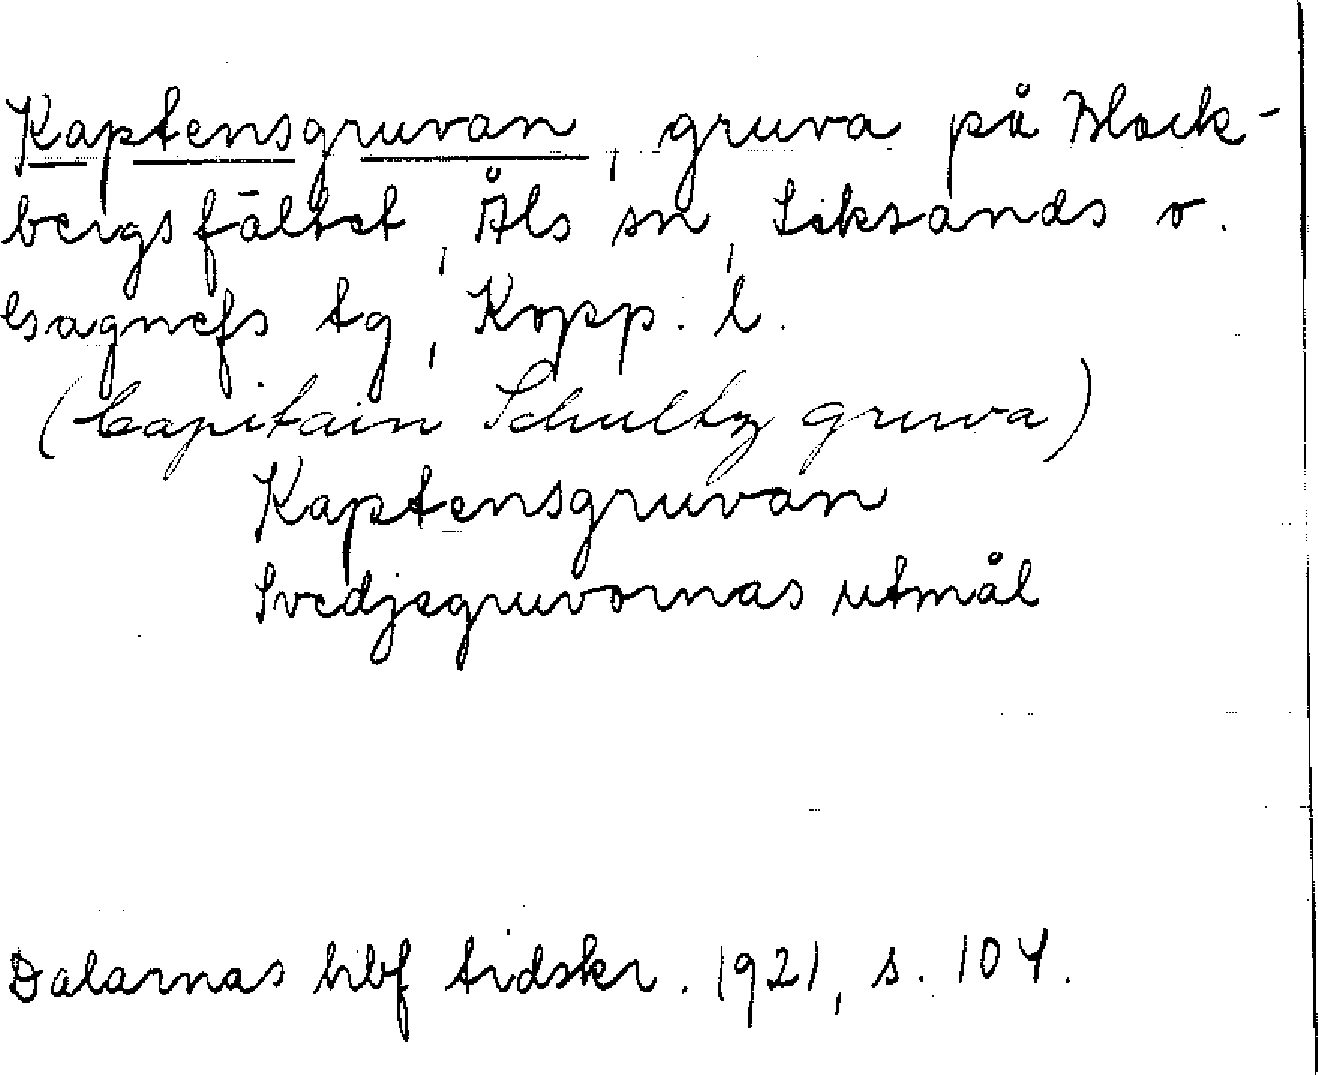 Kaptensgruvan, gruva på Block-
bergsfältet, Åls sn, Leksands o.
Gagnefs tg, Kopp. l.
(Capitain Schultz gruwa)
Kaptensgruvan
Svedjegruvornas utmål
Dalarnas hbf tidskr. 1921, s. 104.